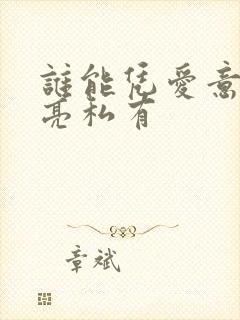 誰能凭愛意
亮私有
章斌